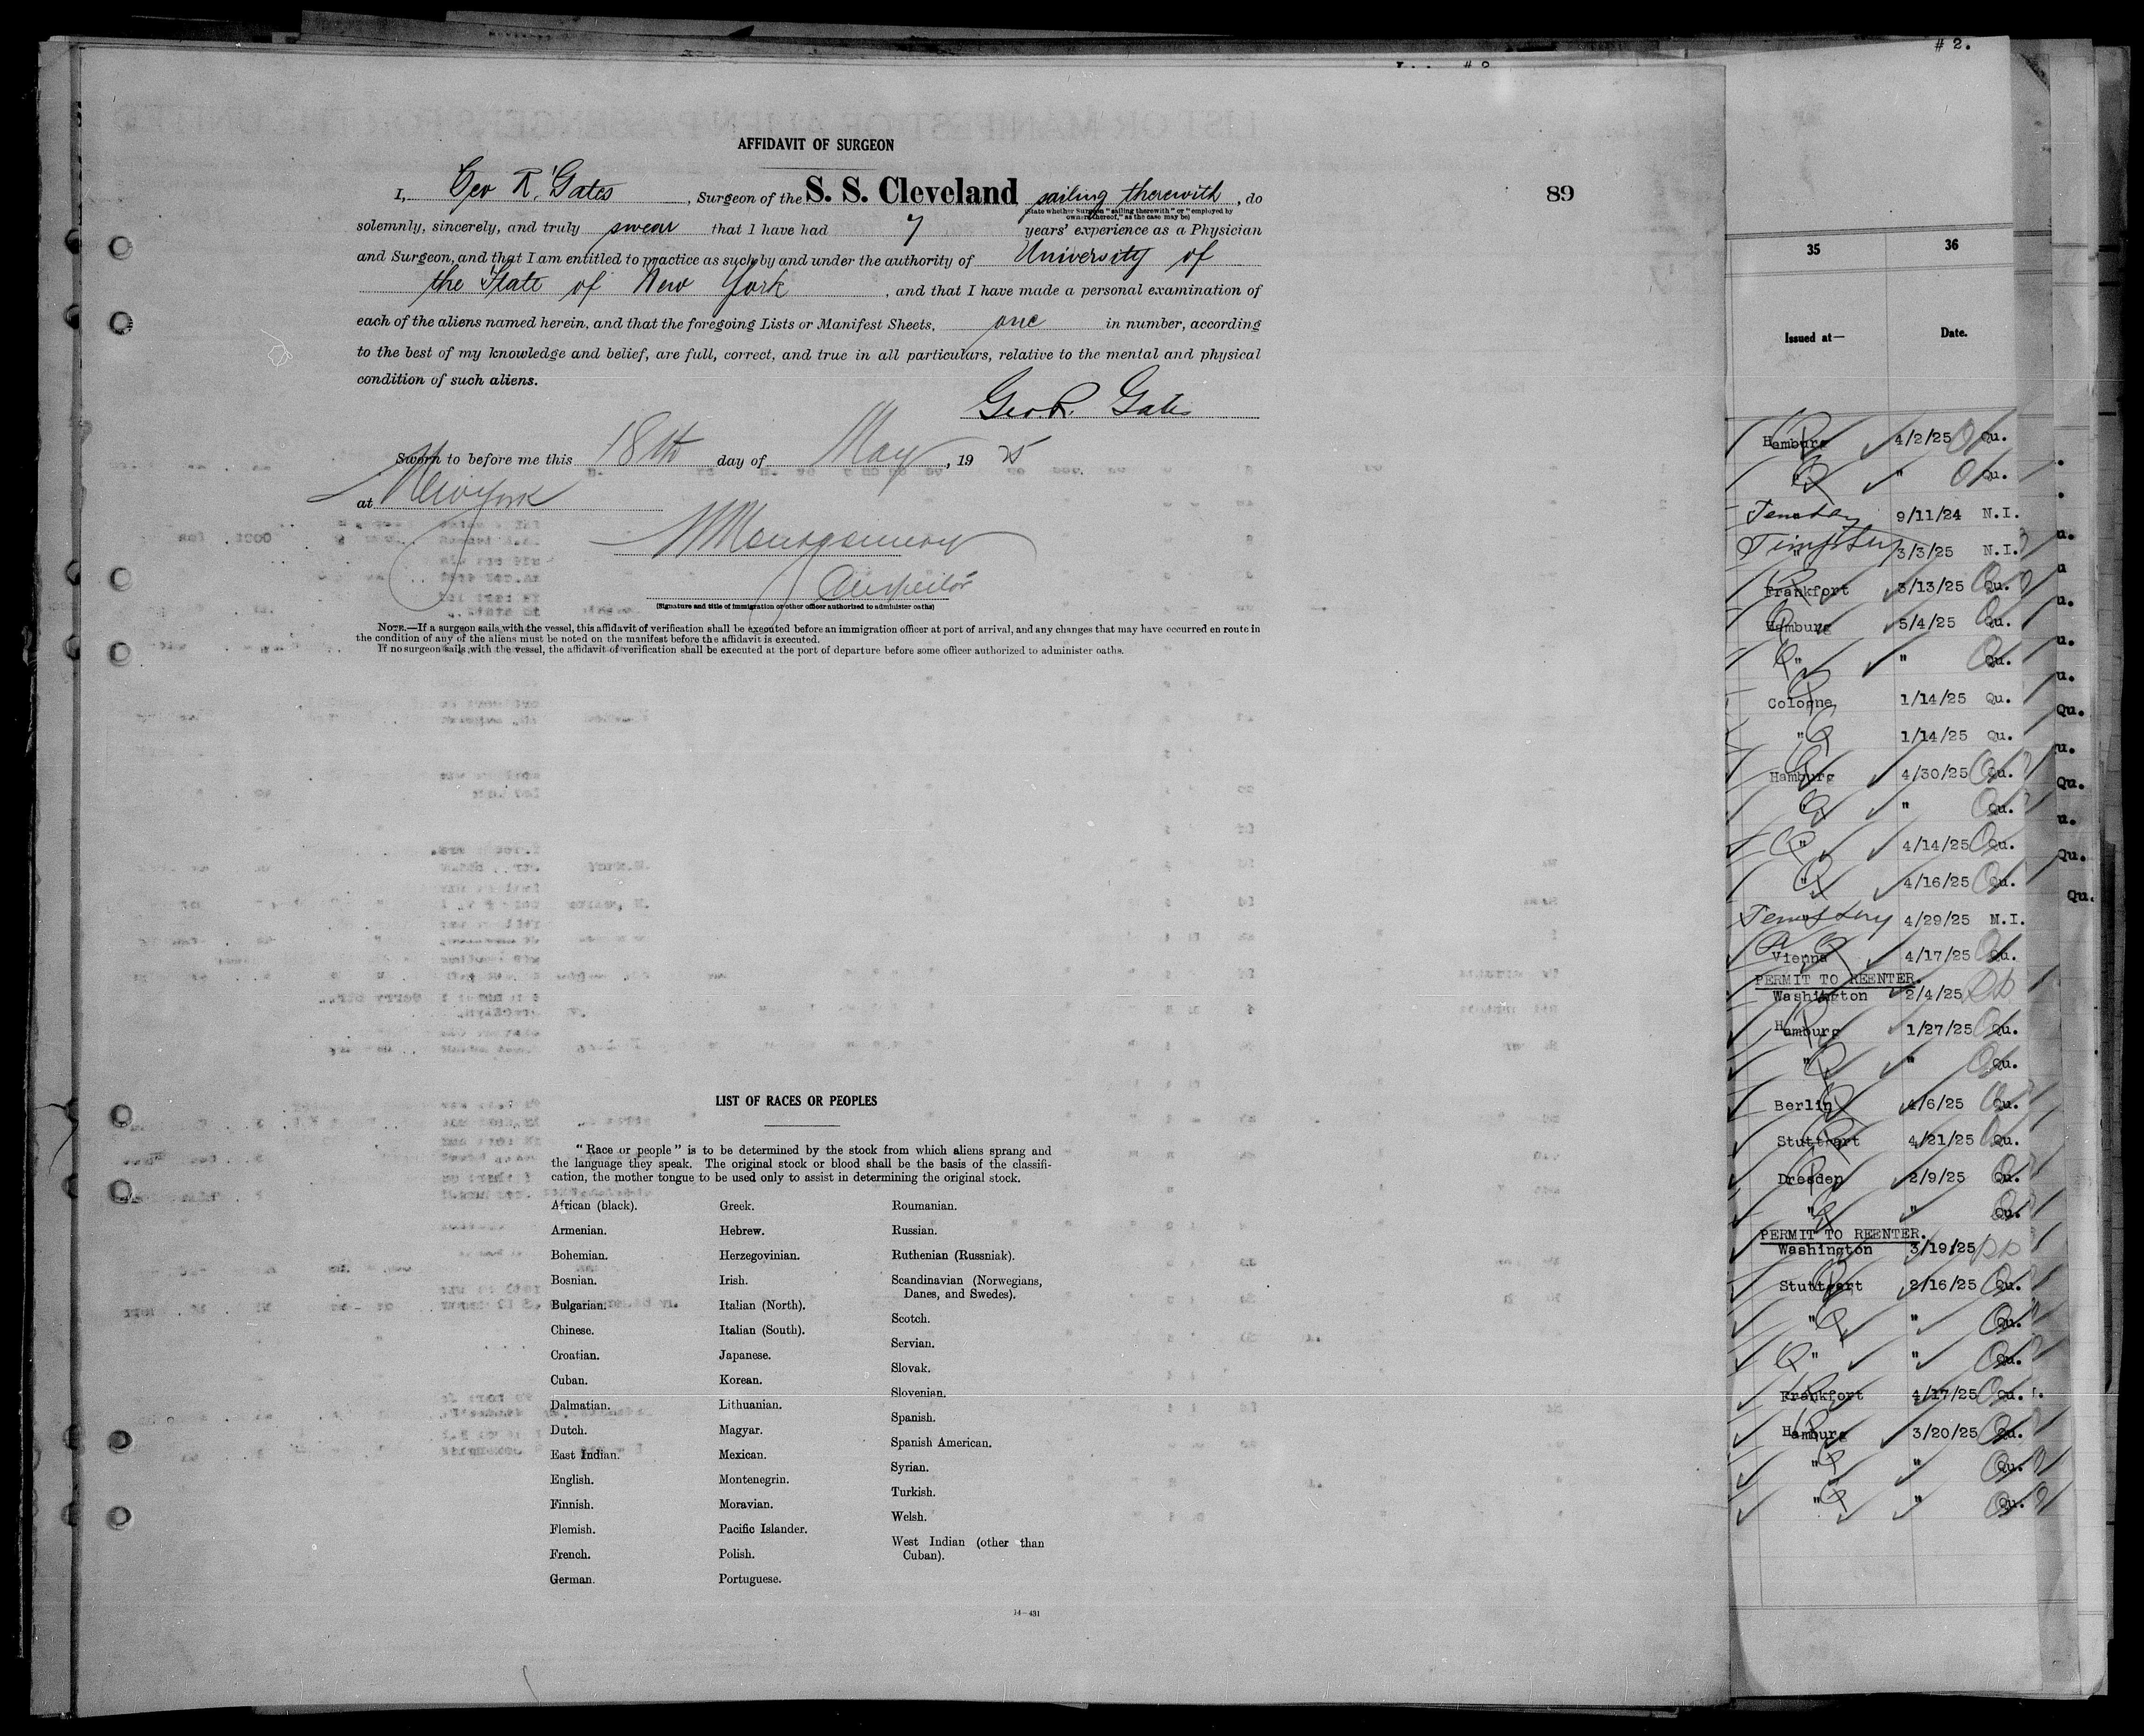 # 2.
AFFIDAVIT OF SURGEON
I, Geo R. Gates, Surgeon of the S. S. Cleveland sailing therewith, do
(State whether Surgeon "sailing therewith" or "employed by
owners thereof," as the case may be)
89
solemnly, sincerely, and truly swear that I have had 7 years' experience as a Physician
and Surgeon, and that I am entitled to practice as such by and under the authority of University of
the State of New York, and that I have made a personal examination of
each of the aliens named herein, and that the foregoing Lists or Manifest Sheets, one in number, according
to the best of my knowledge and belief, are full, correct, and true in all particulars, relative to the mental and physical
condition of such aliens.
Geo R. Gates
Sworn to before me this 18th day of May, 19 25
at New York
Montgomery
Inspector
(Signature and title of immigration or other officer authorized to administer oaths)
NOTE.—If a surgeon sails with the vessel, this affidavit of verification shall be executed before an immigration officer at port of arrival, and any changes that may have occurred en route in
the condition of any of the aliens must be noted on the manifest before the affidavit is executed.
If no surgeon sails with the vessel, the affidavit of verification shall be executed at the port of departure before some officer authorized to administer oaths.
LIST OF RACES OR PEOPLES
"Race or people" is to be determined by the stock from which aliens sprang and
the language they speak. The original stock or blood shall be the basis of the classifi-
cation, the mother tongue to be used only to assist in determining the original stock.
African (black).
Armenian.
Bohemian.
Bosnian.
Bulgarian.
Chinese.
Croatian.
Cuban.
Dalmatian.
Dutch.
East Indian.
English.
Finnish.
Flemish.
French.
German.
Greek.
Hebrew.
Herzegovinian.
Irish.
Italian (North).
Italian (South).
Japanese.
Korean.
Lithuanian.
Magyar.
Mexican.
Montenegrin.
Moravian.
Pacific Islander.
Polish.
Portuguese.
Roumanian.
Russian.
Ruthenian (Russniak).
Scandinavian (Norwegians,
Danes, and Swedes).
Scotch.
Servian.
Slovak.
Slovenian.
Spanish.
Spanish American.
Syrian.
Turkish.
Welsh.
West Indian (other than
Cuban).
14—431
35 36
Issued at— Date.
Hamburg 4/2/25 Qu.
" " Qu.
9/11/24 N.I.
" 3/3/25 N.I.
Frankfort 3/13/25 Qu.
Hamburg 5/4/25 Qu.
" " Qu.
Cologne 1/14/25 Qu.
" 1/14/25 Qu.
Hamburg 4/30/25 Qu.
" " Qu.
" 4/14/25 Qu.
" 4/16/25 Qu.
" 4/29/25 N.I.
Vienna 4/17/25 Qu.
PERMIT TO REENTER.
Washington 2/4/25
Hamburg 1/27/25 Qu.
" " Qu.
Berlin 4/6/25 Qu.
Stuttgart 4/21/25 Qu.
Dresden 2/9/25 Qu.
" " Qu.
PERMIT TO REENTER.
Washington 3/19/25
Stuttgart 2/16/25 Qu.
" " Qu.
" " Qu.
Frankfort 4/17/25 Qu.
Hamburg 3/20/25 Qu.
" " Qu.
" " Qu.